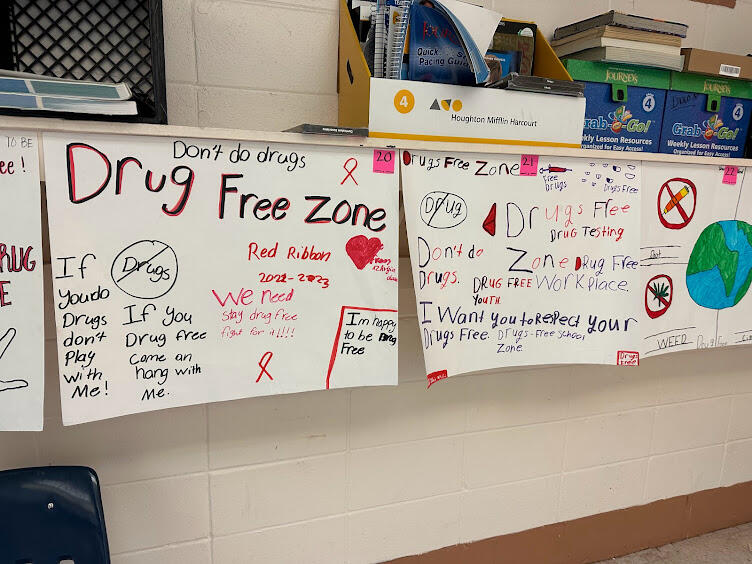 Quick
Pacing Guide
4
Houghton Mifflin Harcourt
JOURNEYS
4
Grab-n-Go!
Weekly Lesson Resources
Organized for Easy Access!
JOURNEYS
4
Grab-n-Go!
Weekly Lesson Resources
Organized for Easy Access!
TO BE
ee!
RUG
E
Don't do drugs
20
Drug Free Zone
If
you do
Drugs
don't
Play
with
Me!
Drugs
If you
Drug free
come an
hang with
Me.
Red Ribbon
2022-2023
We need
stay drug free
fight for it!!!!
from
I'm happy
to be Drug
Free
Drugs Free Zone
21
Free
Drugs
Drugs Free
Drug
Drugs Free
DRUG TESTING
Don't do
Drugs.
Zone Drug Free
DRUG FREE
YOUTH.
WORKPLACE.
I Want you to respect your
Drugs Free. Drugs-Free School
Zone
Drugs
Free
22
WEED